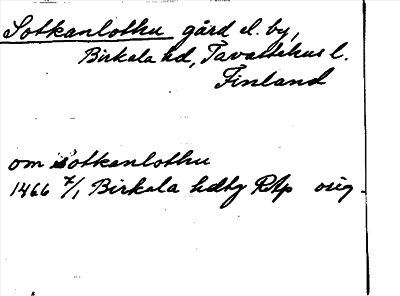 Sotkanlothu gård el. by,
Birkala hd, Tavastehus l.
Finland
om sotkanlothu
1466 7/1 Birkala hdtg Rtp orig.